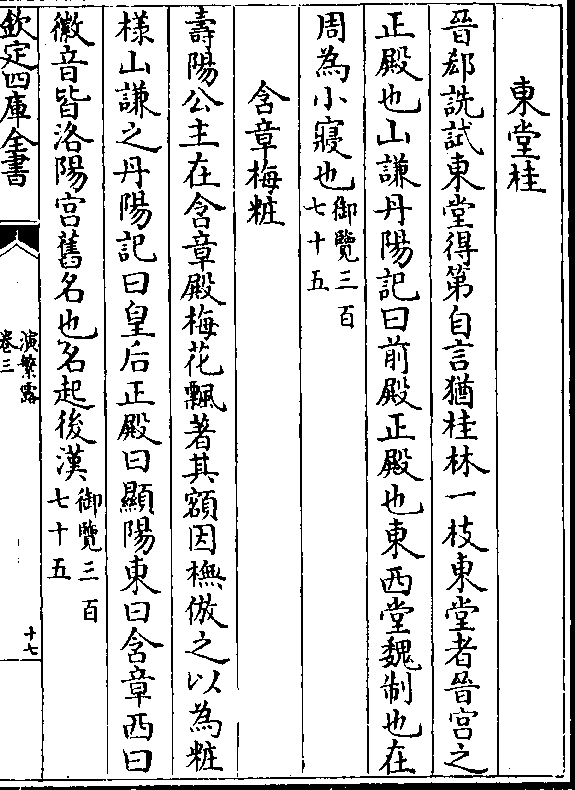 東堂桂
晉郄詵試東堂得第自言猶桂林一枝東堂者晉宫之
正殿也山謙丹陽記曰前殿正殿也東西堂魏制也在
周為小寢也御覽三百
七十五
含章梅粧
壽陽公主在含章殿梅花飄著其額因橅倣之以為粧
様山謙之丹陽記曰皇后正殿曰顯陽東曰含章西曰
徽音皆洛陽宫舊名也名起後漢御覽三百
七十五
欽定四庫全書
演繁露
卷三
十七